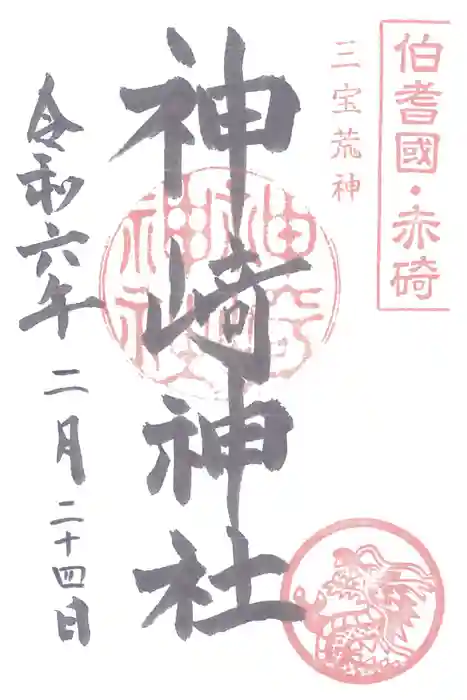 伯耆國・赤碕
三宝荒神
神崎神社
令和六年二月二十四日